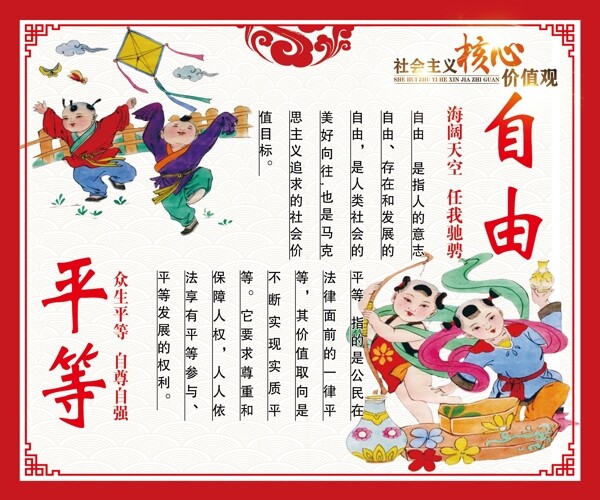 社会主义核心价值观
SHE HUI ZHU YI HE XIN JIA ZHI GUAN
自由
海阔天空 任我驰骋
自由 是指人的意志
自由、存在和发展的
自由，是人类社会的
美好向往，也是马克
思主义追求的社会价
值目标。
平等 指的是公民在
法律面前的一律平
等，其价值取向是
不断实现实质平
等。它要求尊重和
保障人权，人人依
法享有平等参与、
平等发展的权利。
众生平等 自尊自强
平等